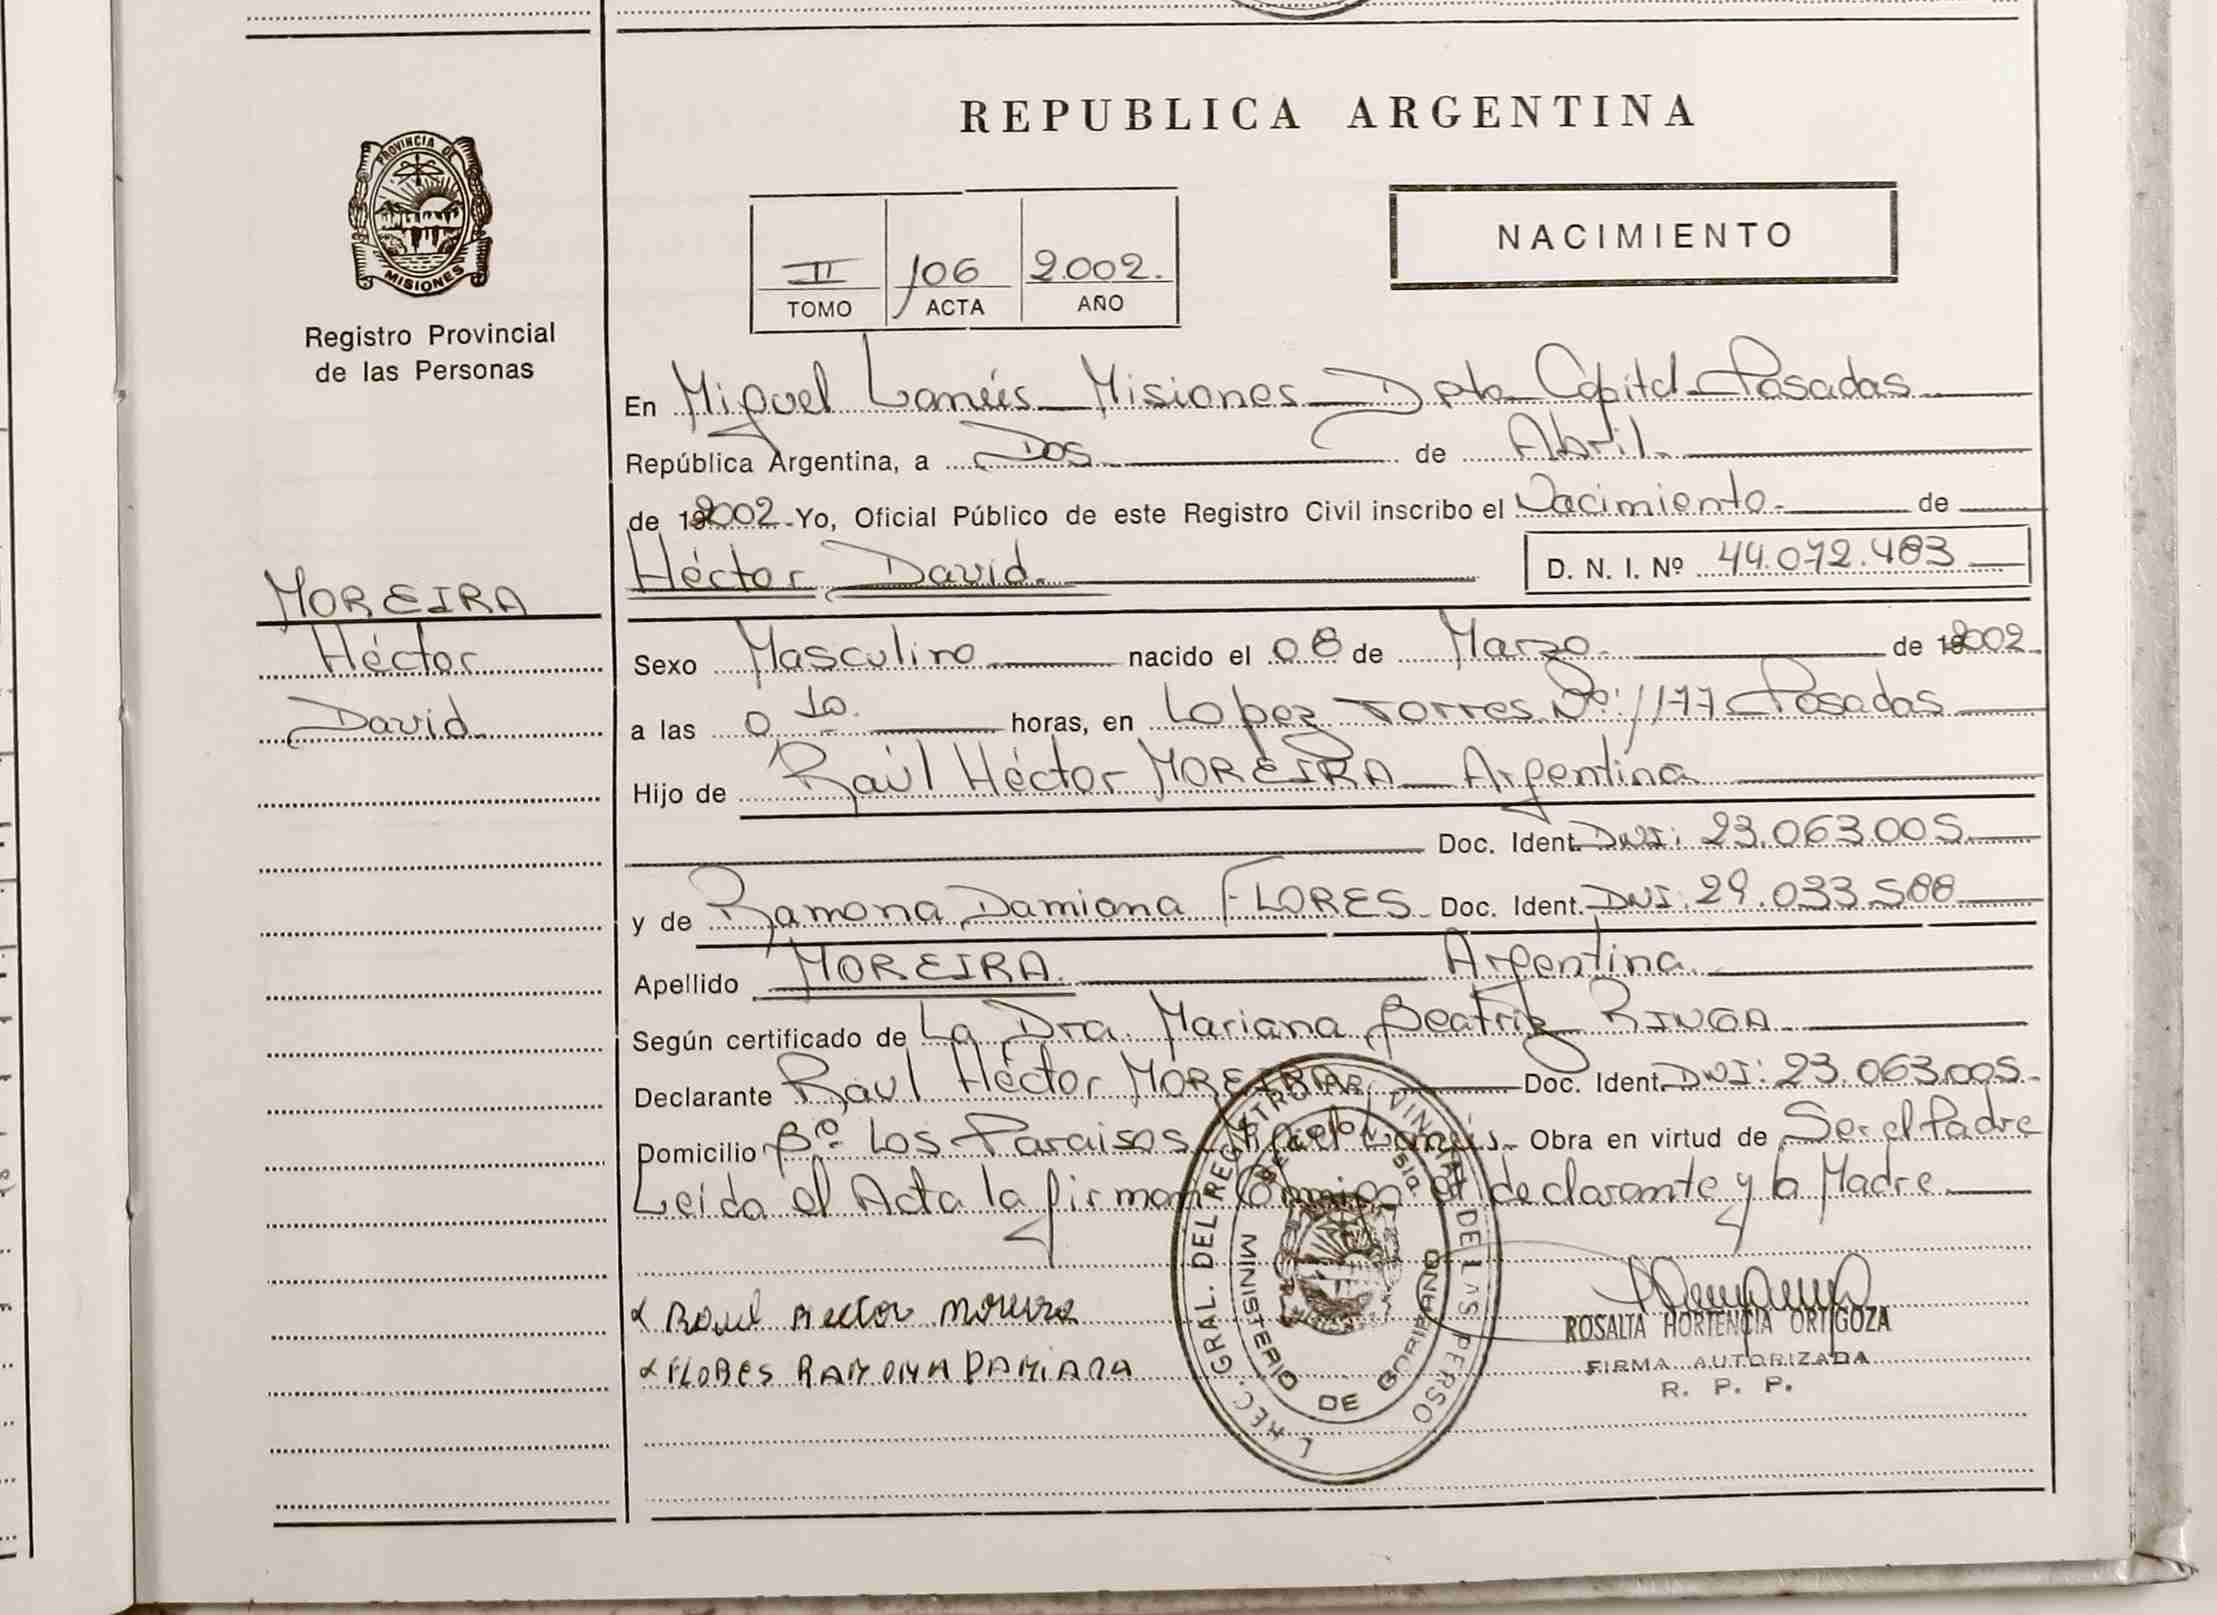 REPUBLICA ARGENTINA
PROVINCIA DE
MISIONES
Registro Provincial
de las Personas
II 106 2.002.
TOMO ACTA AÑO
NACIMIENTO
En Miguel Lanús Misiones Dpto Capital Posadas
República Argentina, a Dos de Abril.
de 192002 Yo, Oficial Público de este Registro Civil inscribo el Nacimiento. de
Héctor David. D. N. I. Nº 44.072.483
MOREIRA
Héctor
David
Sexo Masculino nacido el 08 de Marzo. de 192002.
a las 0 10. horas, en Lopez Torres Nº: 1177 Posadas
Hijo de Raúl Héctor MOREIRA Argentina
Doc. Ident. DNI: 23.063.005.
y de Ramona Damiana FLORES Doc. Ident. DNI: 29.033.588
Apellido MOREIRA. Argentina.
Según certificado de La Dra. Mariana Beatriz RINGA
Declarante Raúl Héctor MOREIRA Doc. Ident. DNI: 23.063.005
Domicilio Bº Los Paraisos Miguel Lanús. Obra en virtud de Ser el Padre
Leída el Acta la firman Conmigo el declarante y la Madre
Raul Hector Moreira
FLORES RAMONA DAMIANA
GRAL. DEL REGISTRO PROVINCIAL DE LAS PERSO
MINISTERIO DE GOBIERNO
ROSALIA HORTENCIA ORTIGOZA
FIRMA AUTORIZADA
R. P. P.